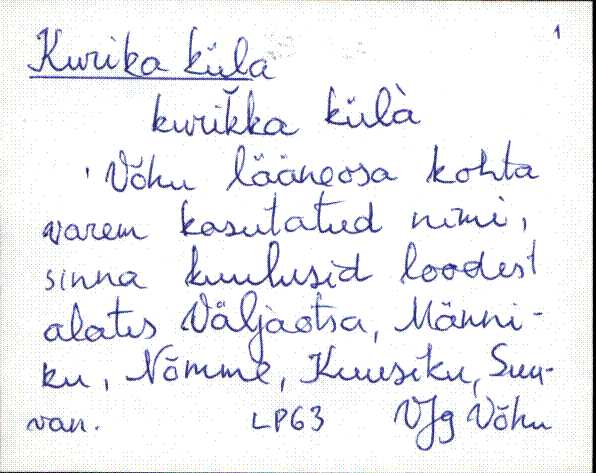 1
Kurika küla
kurikka külà
Võhu lääneosa kohta
varem kasutatud nimi,
sinna kuulusid loodest
alates Väljaotsa, Männi-
ku, Nõmme, Kuusiku, Suu-
van. LP63 VJg Võhu